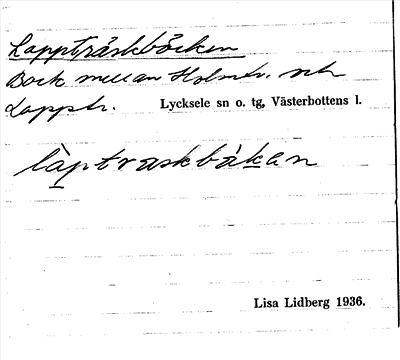 Lappträskbäcken
Bäck mellan Holmtr. och
Lapptr. Lycksele sn o. tg, Västerbottens l.
làptraskbäkan
Lisa Lidberg 1936.